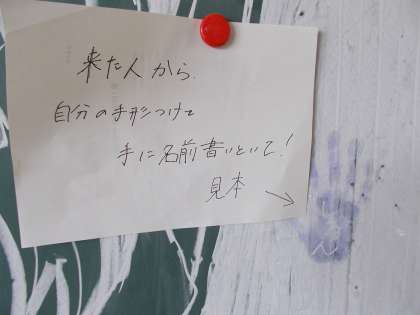 来た人から、
自分の手形つけて
手に名前書いといて!
見本